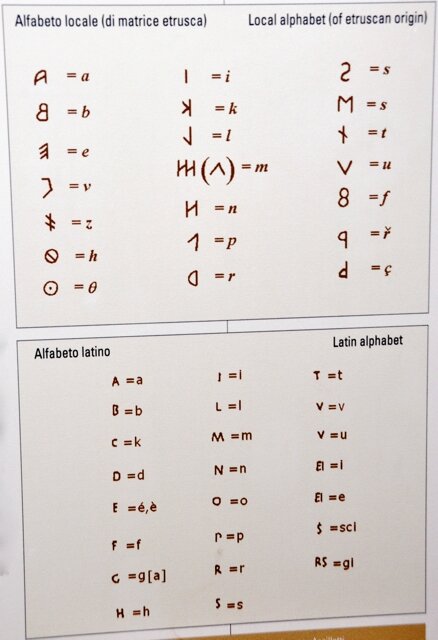 Alfabeto locale (di matrice etrusca)
Local alphabet (of etruscan origin)
𐌀 = a
𐌁 = b
𐌄 = e
𐌅 = v
𐌆 = z
𐌇 = h
𐌈 = θ
𐌉 = i
𐌊 = k
𐌋 = l
𐌌 (Λ) = m
𐌍 = n
𐌐 = p
𐌓 = r
𐌔 = s
𐌑 = s
𐌕 = t
𐌖 = u
𐌚 = f
𐌛 = ř
𐌜 = ç
Alfabeto latino
Latin alphabet
A = a
B = b
C = k
D = d
E = é,è
F = f
G = g[a]
H = h
I = i
L = l
M = m
N = n
O = o
P = p
R = r
S = s
T = t
V = v
V = u
EI = i
EI = e
Ś = sci
RS = gi